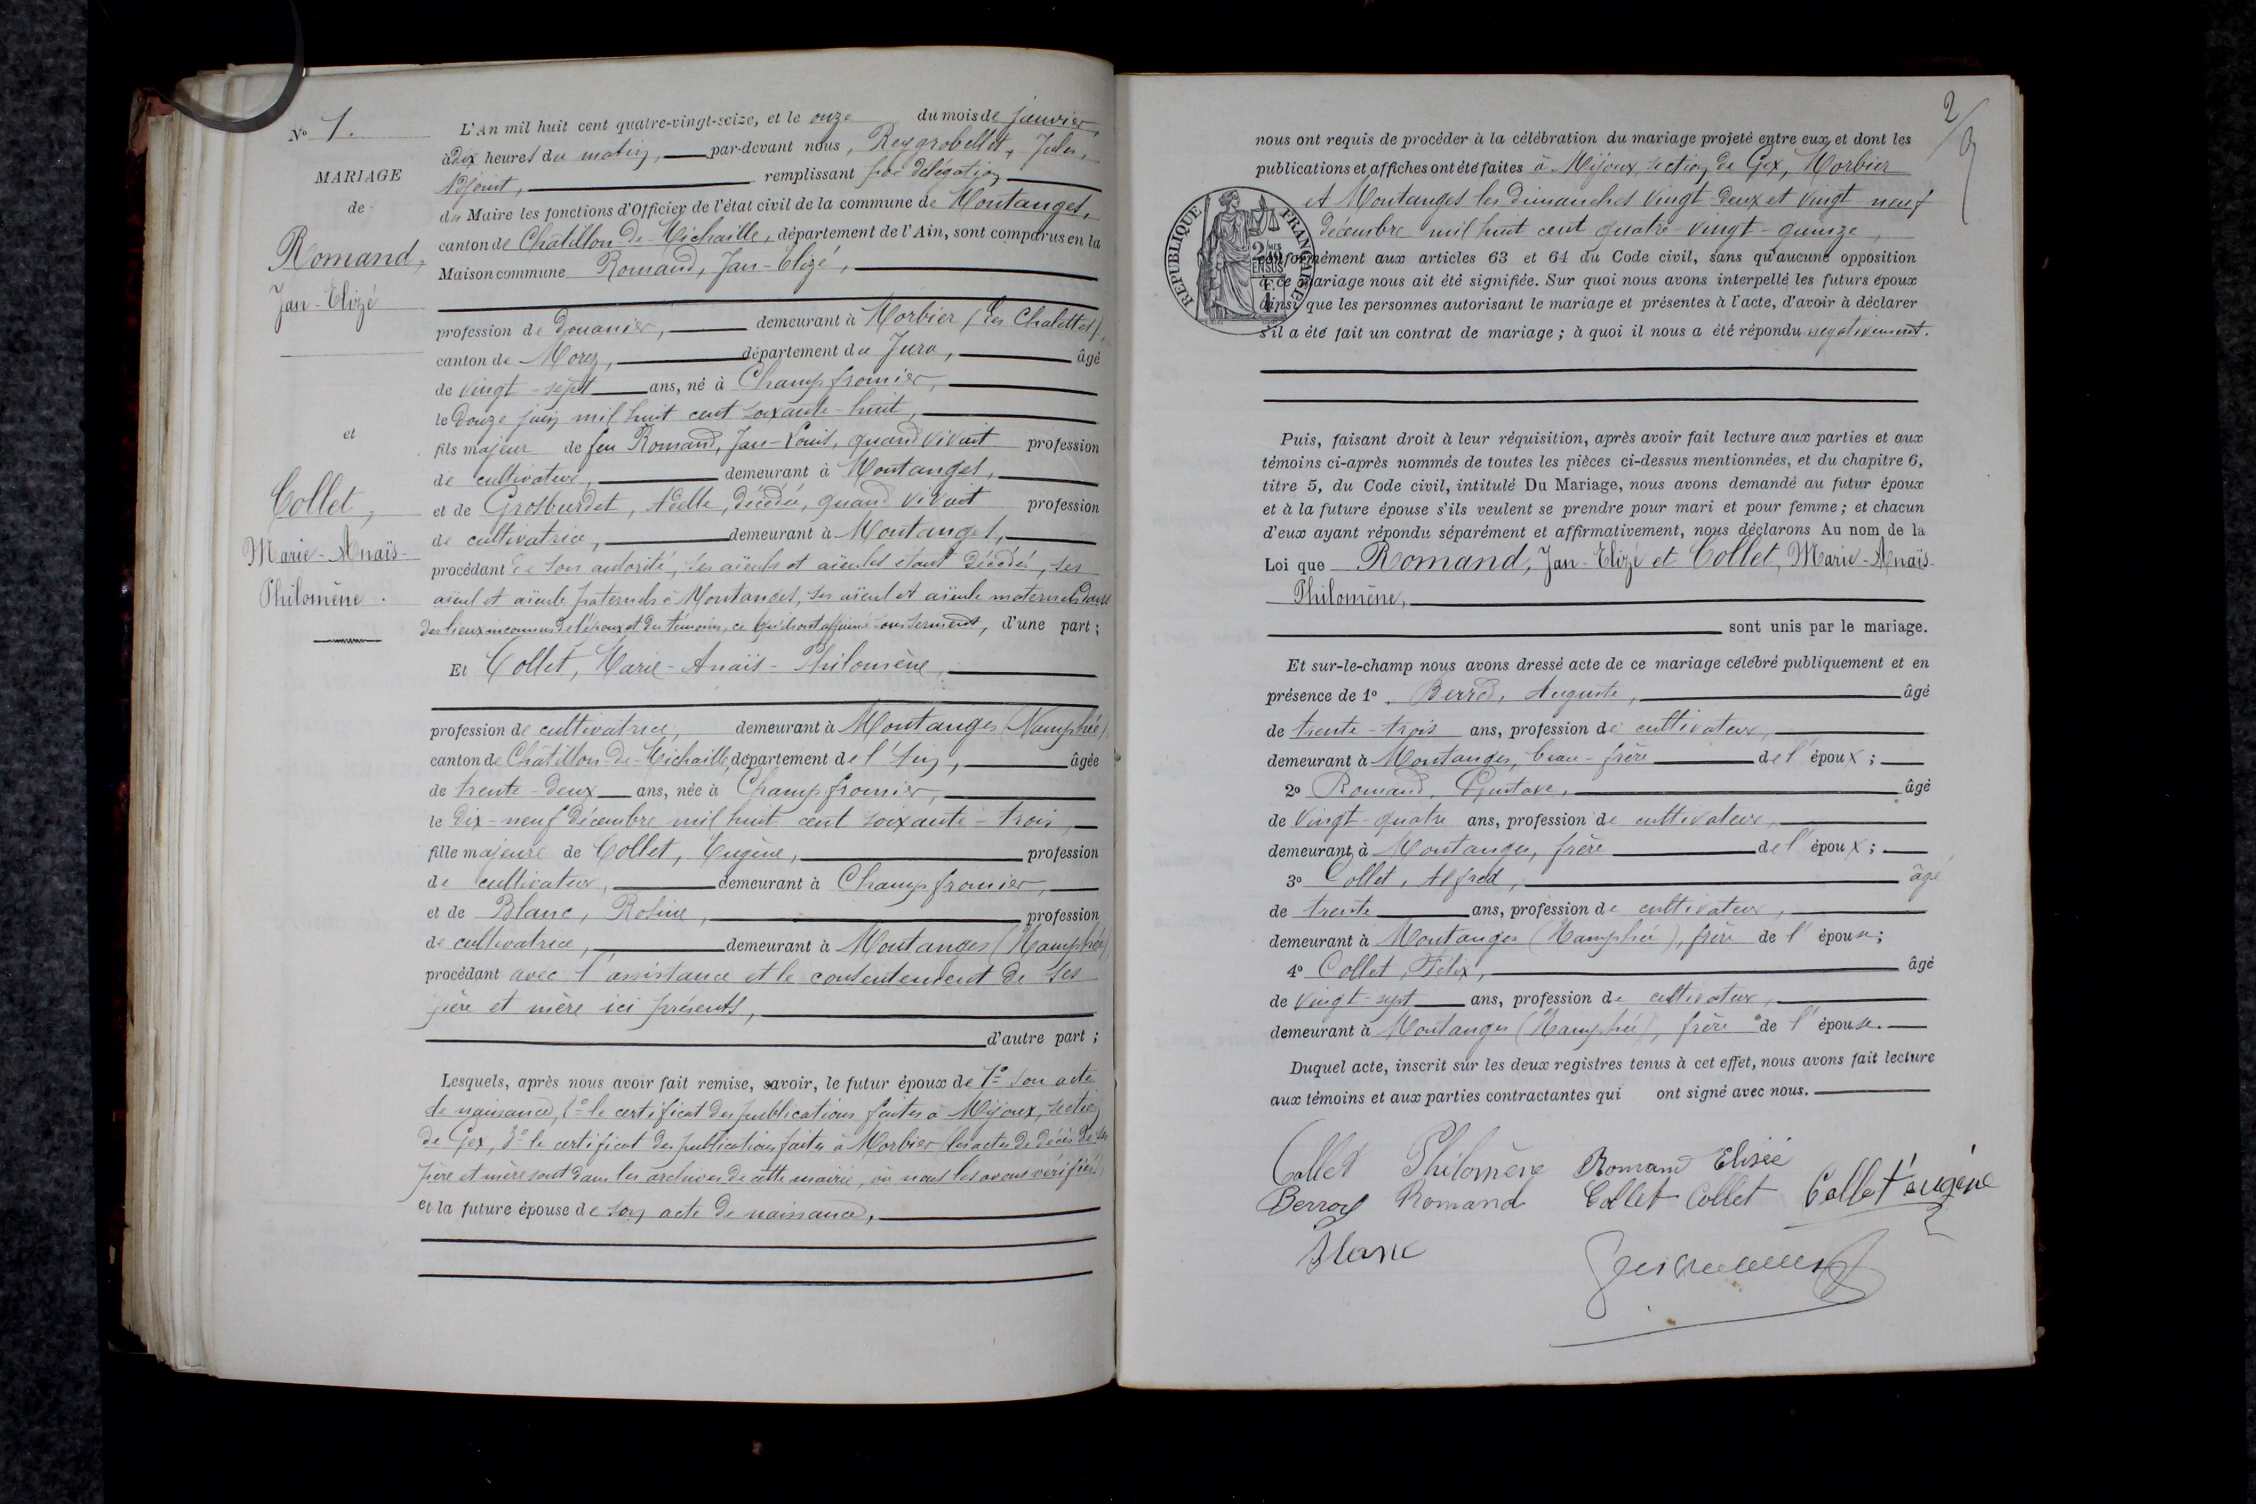 N° 1.
MARIAGE
de
Romand,
Jan-Elizé
et
Collet,
Marie-Anaïs-
Philomène.
L'An mil huit cent quatre-vingt-seize, et le onze du mois de janvier,
à dix heures du matin, par-devant nous, Reygrobellet, Jules,
Adjoint, remplissant par délégation
du Maire les fonctions d'Officier de l'état civil de la commune de Montanges,
canton de Châtillon-de-Michaille, département de l'Ain, sont comparus en la
Maison commune Romand, Jan-Elizé,
profession de Douanier, demeurant à Morbier (les Chalettes),
canton de Morez, département du Jura, âgé
de vingt-sept ans, né à Champfromier,
le douze juin mil huit cent soixante-huit,
fils majeur de feu Romand, Jan-Louis, quand vivait profession
de cultivateur, demeurant à Montanges,
et de Grosburdet, Adèle, décédée, quand vivait profession
de cultivatrice, demeurant à Montanges,
procédant de son autorité, ses aïeuls et aïeules étant décédés, ses
aïeul et aïeule paternels à Montanges, ses aïeul et aïeule maternels dans
des lieux inconnus de l'époux et des témoins, ce qu'ils ont affirmé sous serment, d'une part;
Et Collet, Marie-Anaïs-Philomène,
profession de cultivatrice, demeurant à Montanges (Namphée),
canton de Châtillon-de-Michaille, département de l'Ain, âgée
de trente-deux ans, née à Champfromier,
le dix-neuf décembre mil huit cent soixante-trois,
fille majeure de Collet, Eugène, profession
de cultivateur, demeurant à Champfromier,
et de Blanc, Rosine, profession
de cultivatrice, demeurant à Montanges (Namphée),
procédant avec l'assistance et le consentement de ses
père et mère ici présents,
d'autre part;
Lesquels, après nous avoir fait remise, savoir, le futur époux de 1° son acte
de naissance, 2° le certificat des publications faites à Mijoux, section
de Gex, 3° le certificat des publications faites à Morbier (les actes de décès de ses
père et mère sont dans les archives de cette mairie, où nous les avons vérifiés)
et la future épouse de son acte de naissance,
2
nous ont requis de procéder à la célébration du mariage projeté entre eux, et dont les
publications et affiches ont été faites à Mijoux, section de Gex, Morbier
et Montanges les dimanches vingt-deux et vingt-neuf
décembre mil huit cent quatre-vingt-quinze,
conformément aux articles 63 et 64 du Code civil, sans qu'aucune opposition
à ce mariage nous ait été signifiée. Sur quoi nous avons interpellé les futurs époux
ainsi que les personnes autorisant le mariage et présentes à l'acte, d'avoir à déclarer
s'il a été fait un contrat de mariage; à quoi il nous a été répondu négativement.
RÉPUBLIQUE FRANÇAISE
Puis, faisant droit à leur réquisition, après avoir fait lecture aux parties et aux
témoins ci-après nommés de toutes les pièces ci-dessus mentionnées, et du chapitre 6,
titre 5, du Code civil, intitulé Du Mariage, nous avons demandé au futur époux
et à la future épouse s'ils veulent se prendre pour mari et pour femme; et chacun
d'eux ayant répondu séparément et affirmativement, nous déclarons Au nom de la
Loi que Romand, Jan-Elizé et Collet, Marie-Anaïs-
Philomène,
sont unis par le mariage.
Et sur-le-champ nous avons dressé acte de ce mariage célébré publiquement et en
présence de 1° Berrod, Auguste, âgé
de trente-trois ans, profession de cultivateur,
demeurant à Montanges, beau-frère de l'époux;
2° Romand, Gustave, âgé
de vingt-quatre ans, profession de cultivateur,
demeurant à Montanges, frère de l'époux;
3° Collet, Alfred, âgé
de trente ans, profession de cultivateur,
demeurant à Montanges (Namphée), frère de l'épouse;
4° Collet, Félix, âgé
de vingt-sept ans, profession de cultivateur,
demeurant à Montanges (Namphée), frère de l'épouse.
Duquel acte, inscrit sur les deux registres tenus à cet effet, nous avons fait lecture
aux témoins et aux parties contractantes qui ont signé avec nous.
Collet Philomène Romand Elisée
Berrod Romand Collet Collet Collet eugène
Blanc